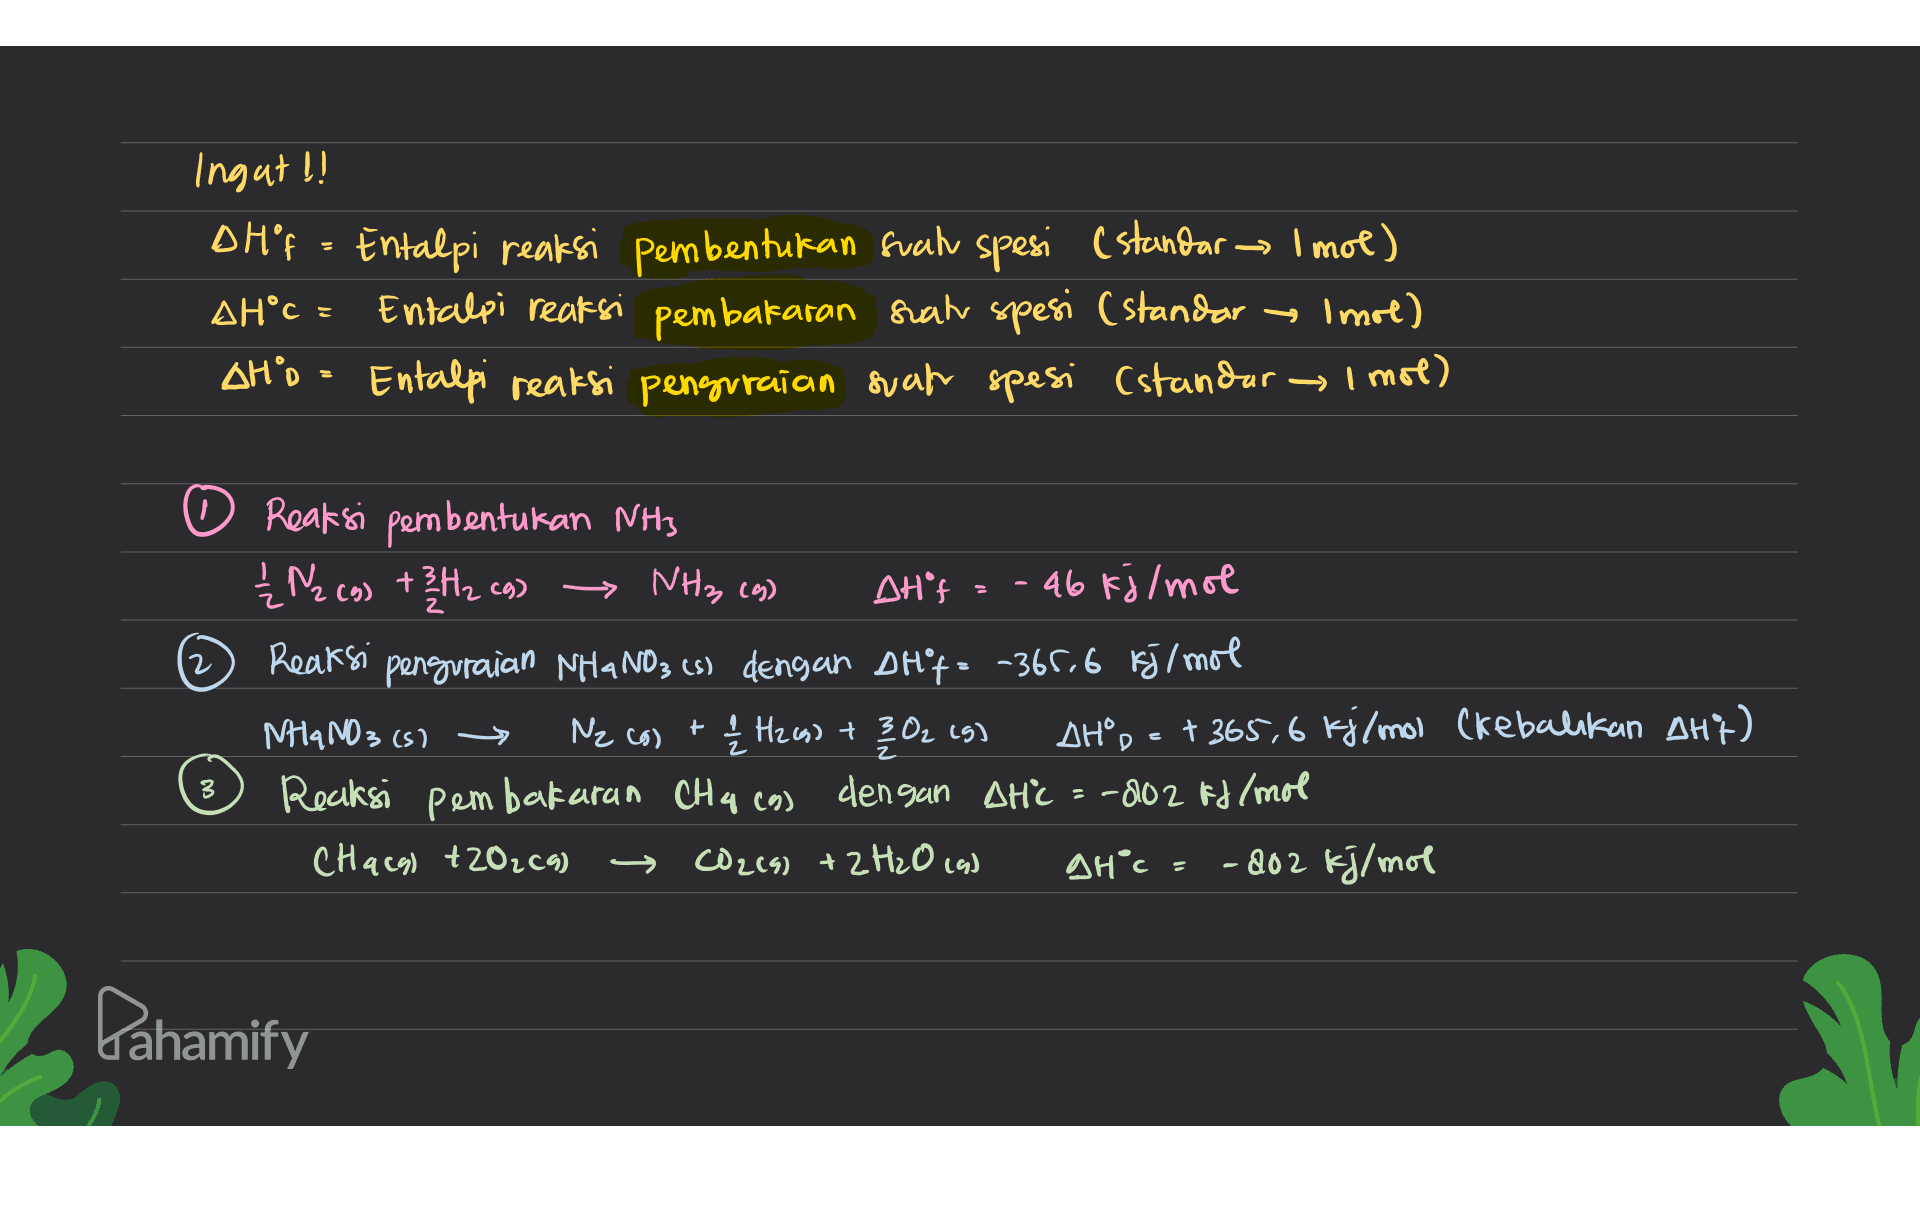 Ingat !!
ΔH°f = Entalpi reaksi pembentukan suatu spesi (standar → 1 mol)
ΔH°c = Entalpi reaksi pembakaran suatu spesi (standar → 1 mol)
ΔH°D = Entalpi reaksi penguraian suatu spesi (standar → 1 mol)
① Reaksi pembentukan NH₃
½ N₂ (g) + 3/2 H₂ (g) → NH₃ (g) ΔH°f = - 46 kj/mol
② Reaksi penguraian NH₄NO₃ (s) dengan ΔH°f = -365,6 kj/mol
NH₄NO₃ (s) → N₂ (g) + ½ H₂(g) + 3/2 O₂ (g) ΔH°D = + 365,6 kj/mol (kebalikan ΔH°f)
③ Reaksi pembakaran CH₄ (g) dengan ΔH°c = -802 kJ/mol
CH₄(g) + 2O₂(g) → CO₂(g) + 2 H₂O (g) ΔH°c = - 802 kj/mol
Pahamify